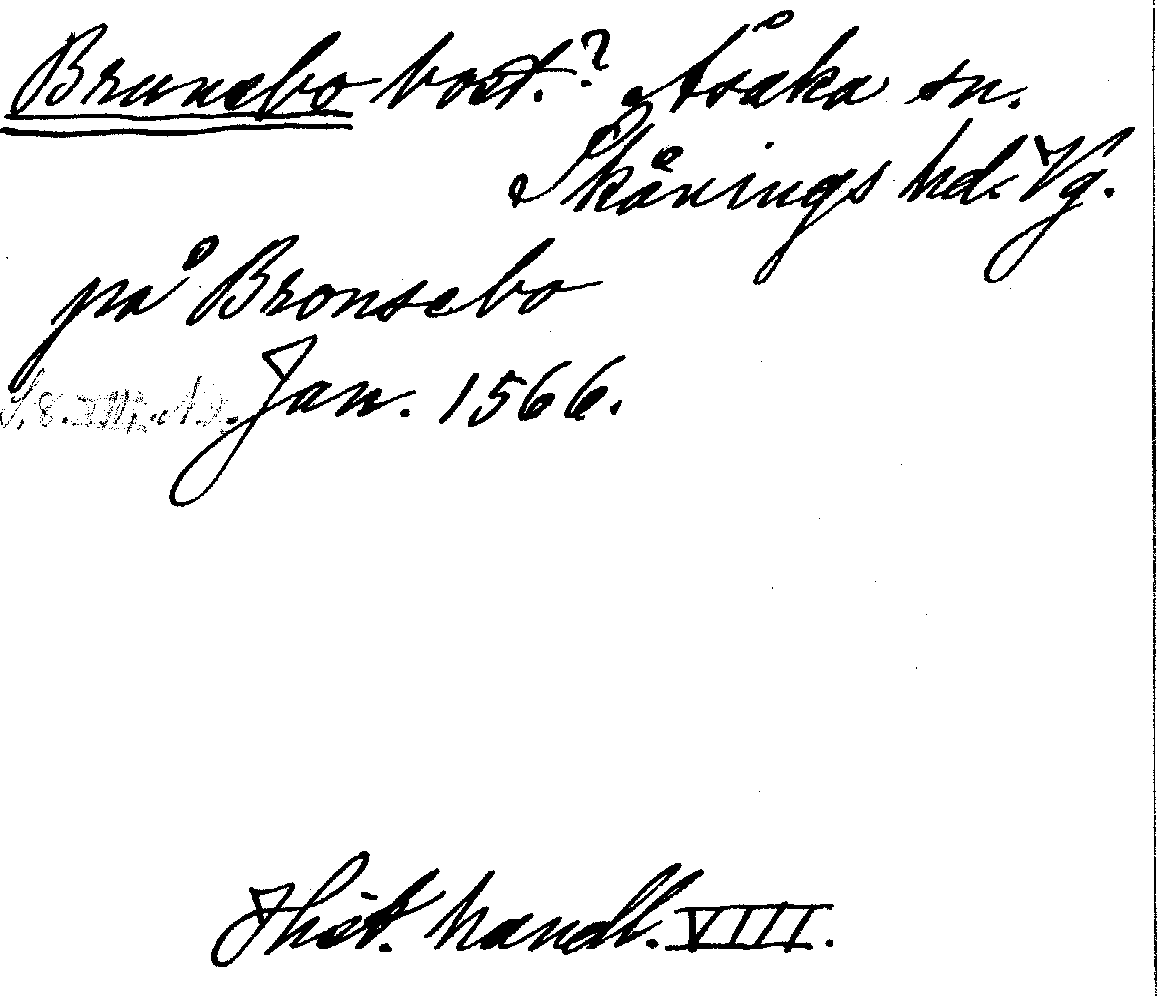 Brunebo bost.? Åsaka sn.
Skånings hd. Vg.
på Bronsebo
Jan. 1566.
Hist. handl. VIII.